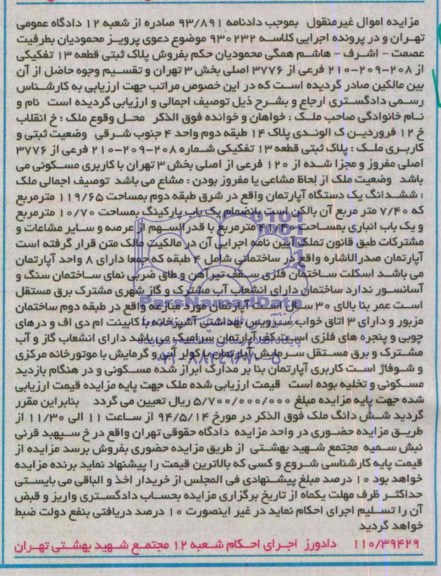 مزایده اموال غیرمنقول بموجب دادنامه ۹۳/۸۹۱ صادره از شعبه ۱۲ دادگاه عمومی
تهران و در پرونده اجرایی کلاسه ۹۳۰۲۳۲ موضوع دعوی پرویز محمودیان بطرفیت
عصمت - اشرف - هاشم همگی محمودیان حکم بفروش پلاک ثبتی قطعه ۱۳ تفکیکی
از ۲۰۸-۲۰۹-۲۱۰ فرعی از ۳۷۷۶ اصلی بخش ۳ تهران و تقسیم وجوه حاصل از آن
بین مالکین صادر گردیده است که در این خصوص مراتب جهت ارزیابی به کارشناس
رسمی دادگستری ارجاع و بشرح ذیل توصیف اجمالی و ارزیابی گردیده است نام و
نام خانوادگی صاحب ملک : خواهان و خوانده فوق الذکر محل وقوع ملک : خ انقلاب
خ ۱۲ فروردین ک الوندی پلاک ۱۴ طبقه دوم واحد ۴ جنوب شرقی وضعیت ثبتی و
کاربری ملک : پلاک ثبتی قطعه ۱۳ تفکیکی شماره ۲۰۸-۲۰۹-۲۱۰ فرعی از ۳۷۷۶
اصلی مفروز و مجزا شده از ۱۲۰ فرعی از اصلی بخش ۳ تهران با کاربری مسکونی می
باشد وضعیت ملک از لحاظ مشاعی یا مفروز بودن : مشاع می باشد توصیف اجمالی ملک
: ششدانگ یک دستگاه آپارتمان واقع در شرق طبقه دوم بمساحت ۱۱۹/۶۵ مترمربع
که ۷/۴۰ متر مربع آن بالکن است بانضمام یک باب پارکینگ بمساحت ۱۰/۷۰ مترمربع
و یک باب انباری بمساحت مترمربع با قدرالسهم از عرصه و سایر مشاعات و
مشترکات طبق قانون تملک آیین نامه اجرایی آن در مالکیت مالک متن قرار گرفته است
آپارتمان صدرالاشاره واقع در ساختمانی شامل ۴ طبقه که جمعا دارای ۸ واحد آپارتمان
می باشد اسکلت ساختمان فلزی سقف تیرآهن و طاق ضربی نمای ساختمان سنگ و
آسانسور ندارد ساختمان دارای انشعاب آب مشترک و گاز شهری مشترک برق مستقل
است عمر بنا بالای ۳۰ سال آپارتمان مورد مبازعه واقع در طبقه دوم ساختمان
مزبور و دارای ۳ اتاق خواب سرویس بهداشتی آشپزخانه با کابینت ام دی اف و درهای
چوبی و پنجره های فلزی است کف آپارتمان سرامیک می باشد دارای انشعاب گاز و آب
مشترک و برق مستقل سرمایش آپارتمان با کولر آبی و گرمایش با موتورخانه مرکزی
و شوفاژ است کاربری آپارتمان بنا بر مدارک ابراز شده مسکونی و در هنگام بازدید
مسکونی و تخلیه بوده است قیمت ارزیابی شده ملک جهت پایه مزایده قیمت ارزیابی
شده جهت پایه مزایده مبلغ ۵/۷۰۰/۰۰۰/۰۰۰ ریال تعیین می گردد بنابراین مقرر
گردید شش دانگ ملک فوق الذکر در مورخ ۹۴/۵/۱۴ از ساعت ۱۱ الی ۱۱/۳۰ از
طریق مزایده حضوری در واحد مزایده دادگاه حقوقی تهران واقع در خ سپهبد قرنی
نبش سمیه مجتمع شهید بهشتی از طریق مزایده حضوری بفروش برسد مزایده از
قیمت پایه کارشناسی شروع و کسی که بالاترین قیمت را پیشنهاد نماید برنده مزایده
خواهد بود ۱۰ درصد مبلغ پیشنهادی فی المجلس از خریدار اخذ و الباقی می بایستی
حداکثر ظرف مهلت یکماه از تاریخ برگزاری مزایده بحساب دادگستری واریز و قبض
آن را تسلیم اجرای احکام نماید در غیر اینصورت ۱۰ درصد دریافتی بنفع دولت ضبط
خواهد گردید
۱۱۰/۳۹۴۲۹ دادورز اجرای احکام شعبه ۱۲ مجتمع شهید بهشتی تهران